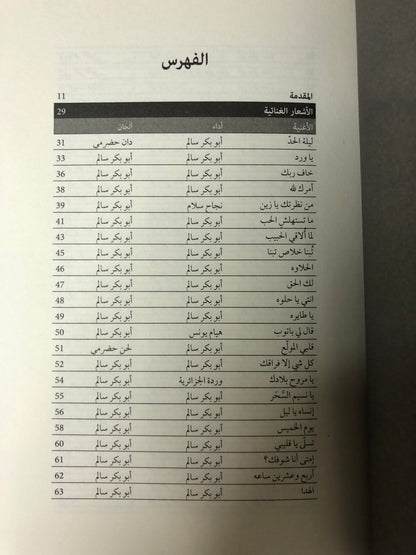 الفهرس
المقدمة 11
الأشعار الغنائية 29
الأغنية أداء ألحان
ليلة الحدّ أبو بكر سالم دان حضرمي 31
يا ورد أبو بكر سالم أبو بكر سالم 33
خاف ربك أبو بكر سالم أبو بكر سالم 36
أمرك لله أبو بكر سالم أبو بكر سالم 38
من نظرتك يا زين نجاح سلام أبو بكر سالم 39
ما تستهلش الحب أبو بكر سالم أبو بكر سالم 41
لما ألاقي الحبيب أبو بكر سالم أبو بكر سالم 43
تُبنا خلاص تبنا أبو بكر سالم أبو بكر سالم 45
الحلاوه أبو بكر سالم أبو بكر سالم 46
لك الحق أبو بكر سالم أبو بكر سالم 47
انتي يا حلوه أبو بكر سالم أبو بكر سالم 48
يا طايره أبو بكر سالم أبو بكر سالم 49
قال لي باتوب هيام يونس أبو بكر سالم 50
قلبي المولّع أبو بكر سالم لحن حضرمي 51
كل شي إلا فراقك أبو بكر سالم أبو بكر سالم 52
يا مروح بلادك وردة الجزائرية أبو بكر سالم 54
يا نسيم السَّحَر أبو بكر سالم أبو بكر سالم 55
إنساه يا ليل أبو بكر سالم أبو بكر سالم 56
يوم الخميس أبو بكر سالم أبو بكر سالم 58
تسلّ يا قلبي أبو بكر سالم أبو بكر سالم 60
إمتى أنا شوفك؟ أبو بكر سالم أبو بكر سالم 61
أربع وعشرين ساعه أبو بكر سالم أبو بكر سالم 62
الهدا أبو بكر سالم أبو بكر سالم 63